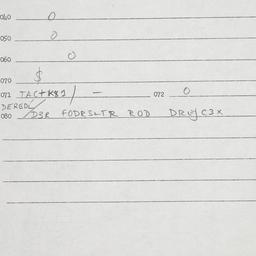 040 0
050 0
060 0
070 $
071 TAC+K81/ - 072 0
DERED
080 FODRSLTR ROD